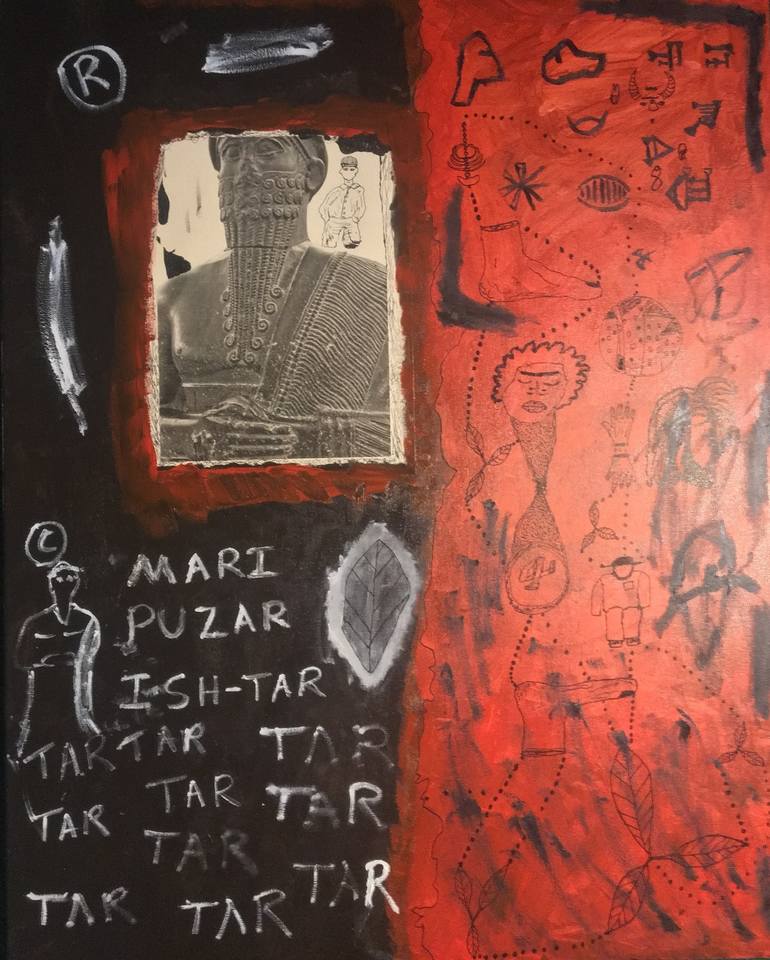 R
C
MARI
PUZAR
ISH-TAR
TAR TAR TAR
TAR TAR
TAR
TAR
TAR
TAR TAR